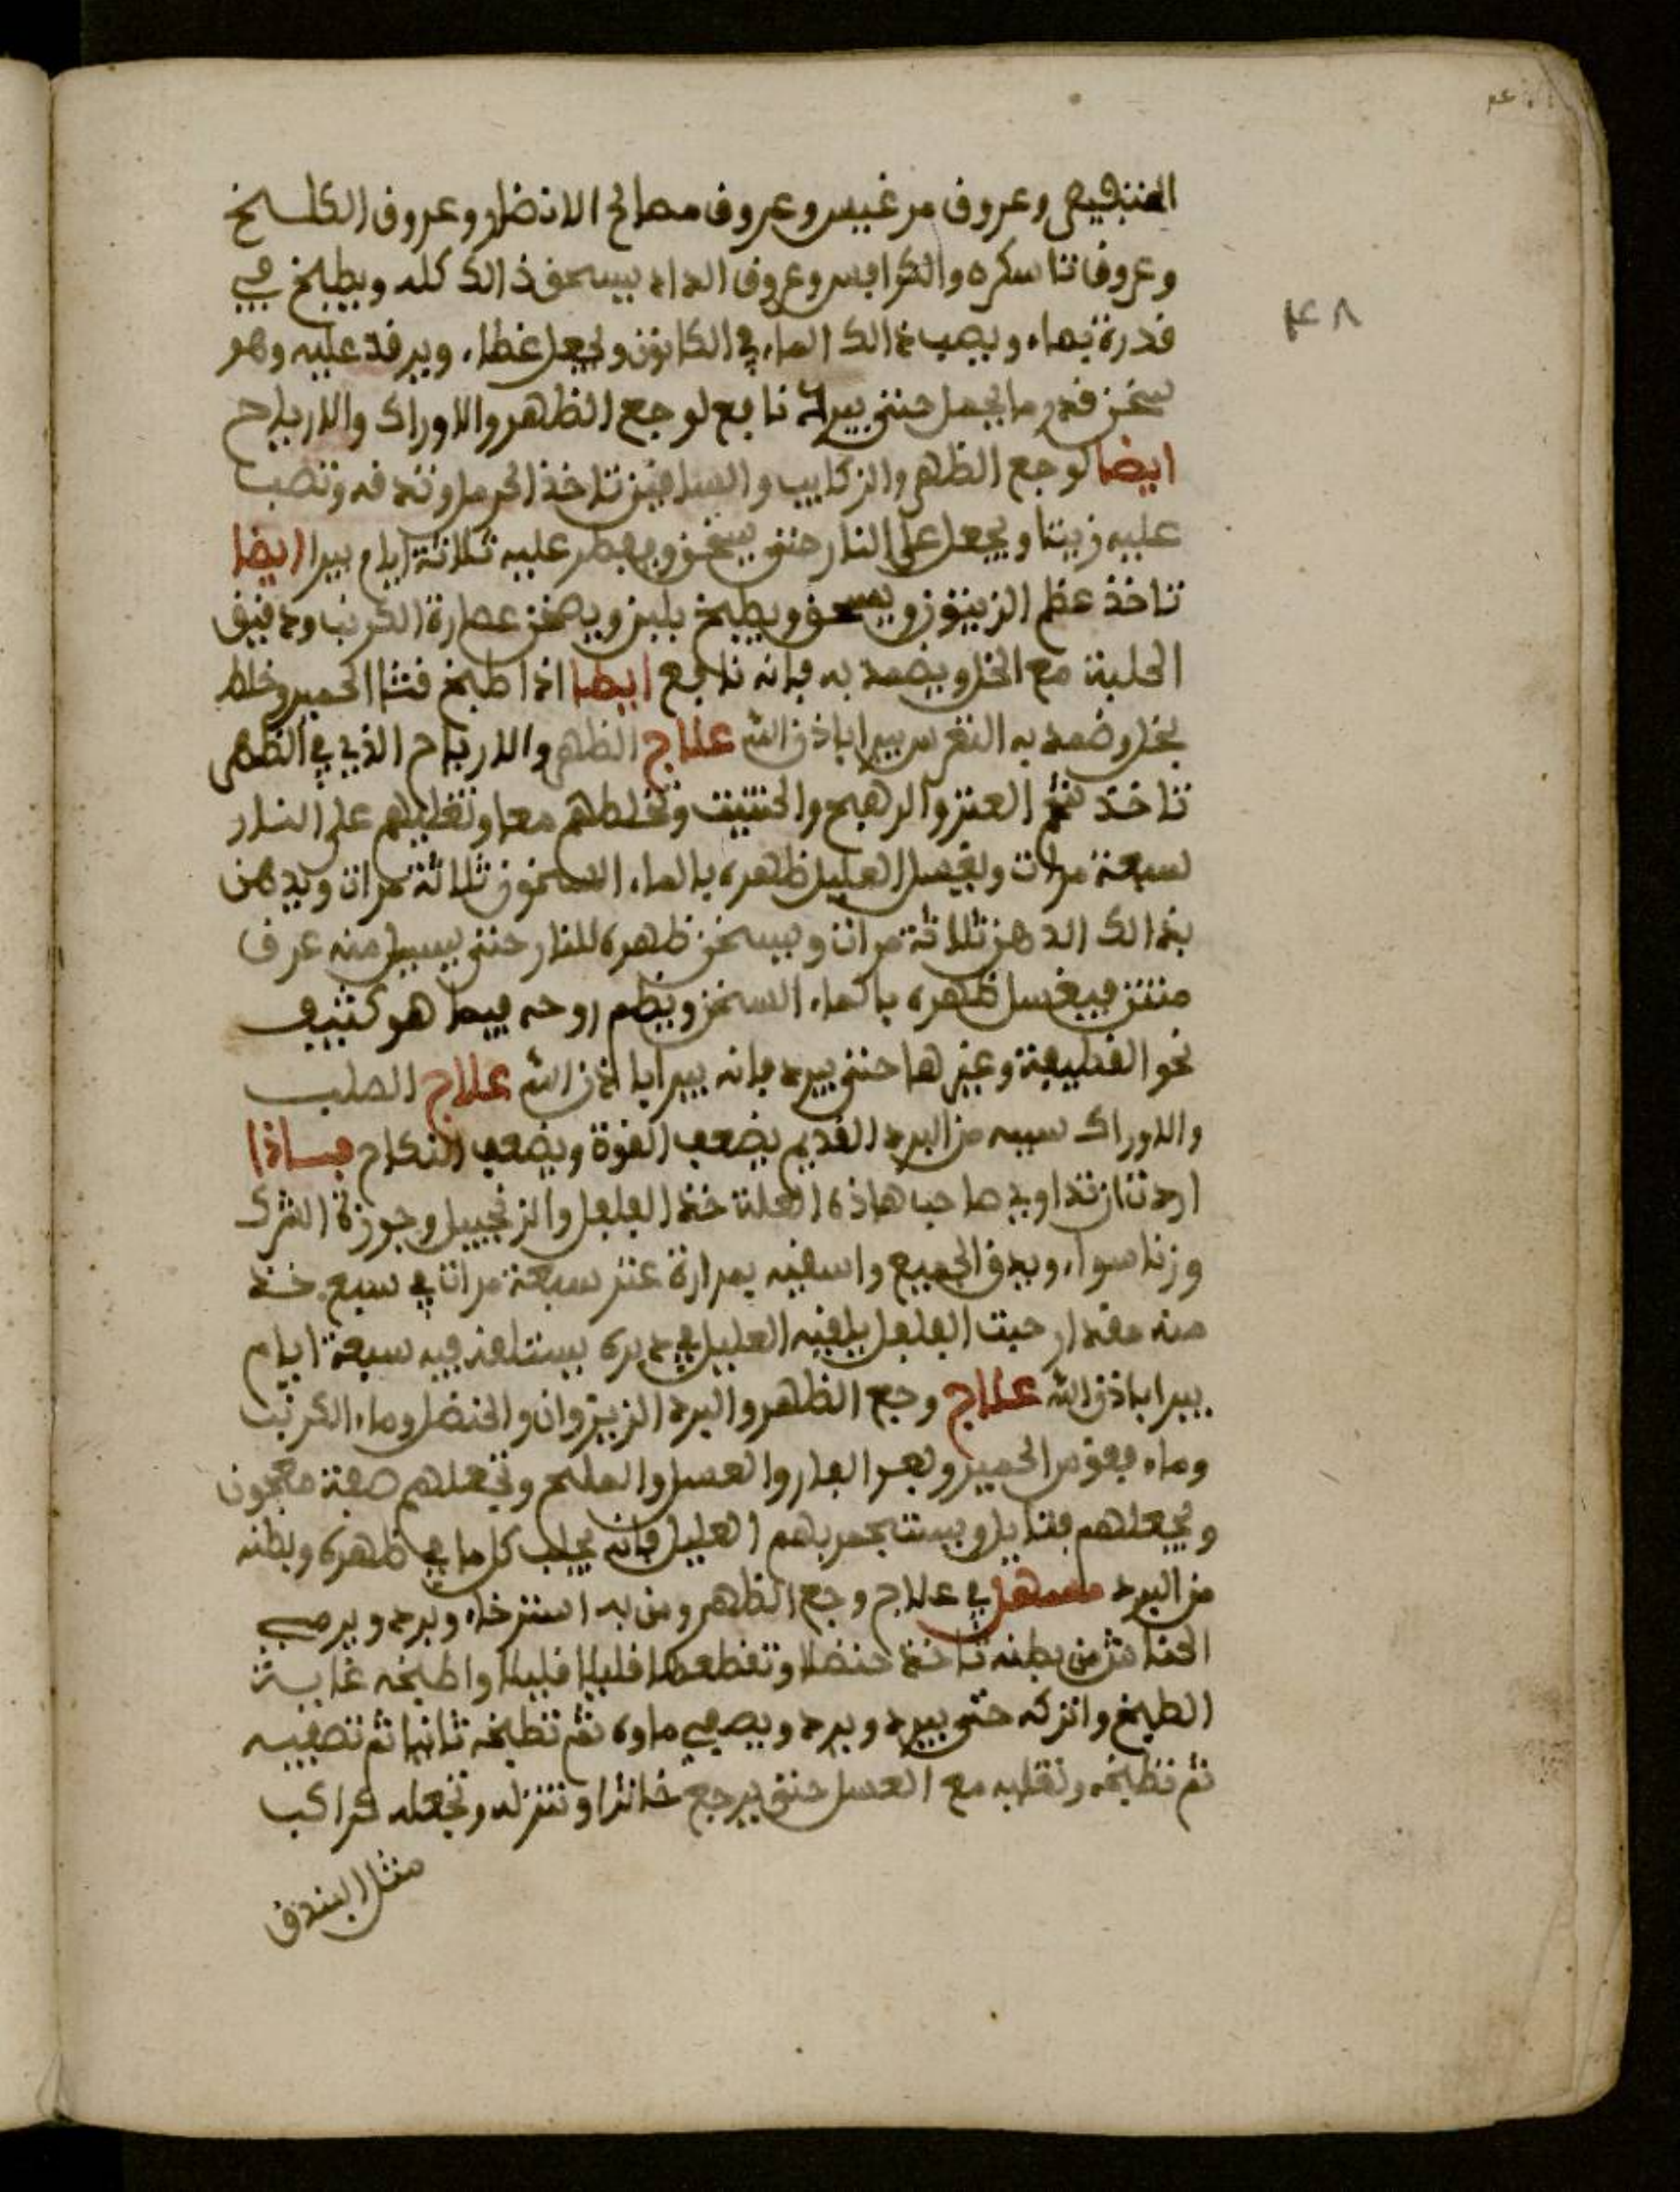 وعروق مرغيس وعروق مصالح الانضار وعروق الكلخ
وعروق تاسكره والكرافس وعروق الداد يسحق ذالك كله ويطبخ في
قدرة بماء ويصب ذالك الماء في الكانون ويجعل غطاء ويرقد عليه وهو
سخن قدر ما يحمل حتى يبرا نافع لوجع الظهر والاوراك والارياح
ايضا لوجع الظهر والركايب والساقين تاخذ الحرمل وتدقه وتصب
عليه زيتا ويجعل على النار حتى يسخن ويعصر عليه ثلاثة ايام يبرا ايضا
تاخذ عظم الزيتون ويسحق ويطبخ بلبن وبصفر عصارة الكرنب ودقيق
الحلبة مع الخل ويضمد به فانه نافع ايضا اذا طبخ قثا الحمير وخلط
بخل وضمد به النقرس يبرا باذن الله علاج الظهر والارياح الذي في الظهر
تاخذ شحم العنز والرهج والحنتيت وتخلطهم معا وتغليهم على النار
سبعة مرات ويغسل العليل ظهره بالماء السخون ثلاثة مرات ويدهن
بذالك الدهن ثلاثة مرات ويسخن ظهره للنار حتى يسيل منه عرق
منتن فيغسل ظهره بالماء السخن ويظم روحه فيما هو كثيف
نحو القطيفة وغيرها حتى يبرد فانه يبرا باذن الله علاج الصلب
والاوراك سببه من البرد القديم يضعف القوة ويضعف النكاح فساذا
اردت ان تداوي صاحب هاذه العلة خذ الفلفل والزنجبيل وجوزة الشرك
وزنا سواء ويدق الجميع واسقيه بمرارة عنز سبعة مرات في سبع خذ
منه مقدار حبت الفلفل يلقيه العليل في دبره يستلقد فيه سبعة ايام
يبرا باذن الله علاج وجع الظهر والبرد الزبزوان والحنضل وماء الكرنب
وماء فقوس الحمير وبعر الفار والعسل والملح وتجعلهم صفة معجون
وتجعلهم فتايل ويستجمر بهم العليل فانه يجلب كل ما في ظهره وبطنه
من البرد مسهل في علاج وجع الظهر ومن به استرخاء وبرد ويرمي
الحناش من بطنه تاخذ حنضلا وتقطعها قليلا قليلا واطبخه غاية
الطبخ واتركه حتى يبرد وبرد ويصفي ماوه ثم تطبخه ثانيا ثم تصفيه
ثم تطبخه وتقلبه مع العسل حتى يرجع خاثرا وتنزله وتجعله كراكب
مثل البندق
٤٨